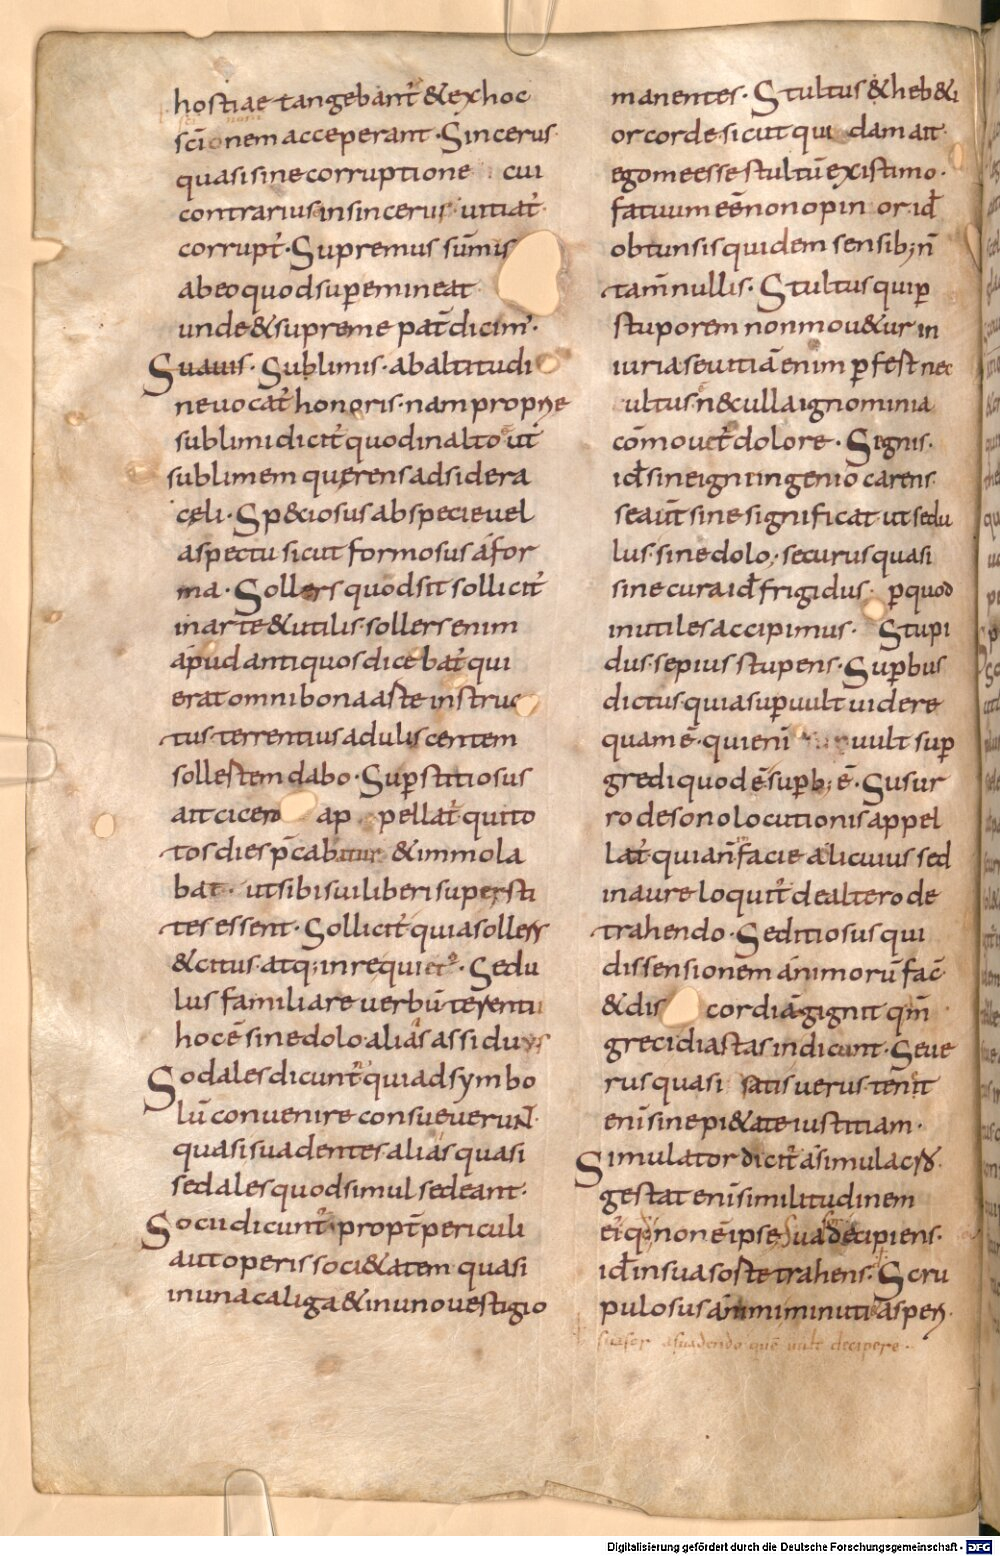 hostiae tangebant᷑ & exhoc
sc̄i nomen acceperant · Sincerus
quasi sine corruptione cui
contrarius insincerus uitiat᷑
corrupt᷑ · Supremus sūmus
ab eo quod sup̄emineat
unde & supreme pat̄ dicim᷑ ·
Suauis · Sublimis · ab altitudi
ne uocat᷑ honoris · nam proprie
sublimi dicit᷑ quod in alto ut᷑
sublimem querens ad sidera
cęli · Sp&ciosus ab specie uel
aspectu sicut formosus a for
ma · Sollers quod sit sollicit᷑
in arte & utilis · sollers enim
apud antiquos dicebat᷑ qui
erat omni bona aste instruc
tus · terrentius aduliscentem
sollestem dabo · Sup̄stitiosus
ait cicero appellat᷑ qui to
tos dies p̄cab & immola
bat · ut sibi sui liberi supersti
tes essent · Sollicit᷑ quia sollers
& citus atq; inrequiet᷑ · Sedu
lus familiare uerbū terenti
hoc ē sine dolo · alias assiduus
Sodales dicunt᷑ qui ad symbo
lū conuenire consueuerunt
quasi suadentes alias quasi
sedales quod simul sedeant ·
Socii dicunt᷑ · propt̄ periculi
aut operis soci&atem quasi
in una caliga & in uno uestigio
manentes · Stultus & heb&i
or corde · sicut qui dam ait
ego me esse stultū existimo ·
fatuum eē non opinor · id̄
obtunsis quidem sensib; n̄
tam̄ nullis · Stultus qui p̄
stuporem non mou&ur in
iuria seuitiā enim p̄fest nec
ultus n̄ & culla ignominia
cōmouet᷑ dolore · Segnis ·
id̄ sine igni ingenio carens
se aūt sine significat ut sedu
lus · sine dolo · securus quasi
sine cura id̄ frigidus · p̄ quod
inutiles accipimus · Stupi
dus · sepius stupens · Sup̄bus
dictus quia sup̄ uult uidere
quam ē · qui enī uult sup̄
gredi quod ē sup̄b; ē · Susur
ro de sono locutionis appel
lat᷑ quia n̄ facie alicuius sed
in aure loquit᷑ de altero de
trahendo · Seditiosus qui
dissensionem animorū fac̄
& discordiā gignit qm̄
greci diastas indicunt · Seue
rus quasi satis uerus · tenit
enī sine pi&ate iustitiam ·
Simulator dicit᷑ a simulacrō
gestat enī similitudinem
ei q̄ non ē ipse Suadecipiens ·
id̄ in sua soste trahens · Scru
pulosus animi minuti asperi ·
suasor a suadendo quē uult decipere ·
Digitalisierung gefördert durch die Deutsche Forschungsgemeinschaft - DFG